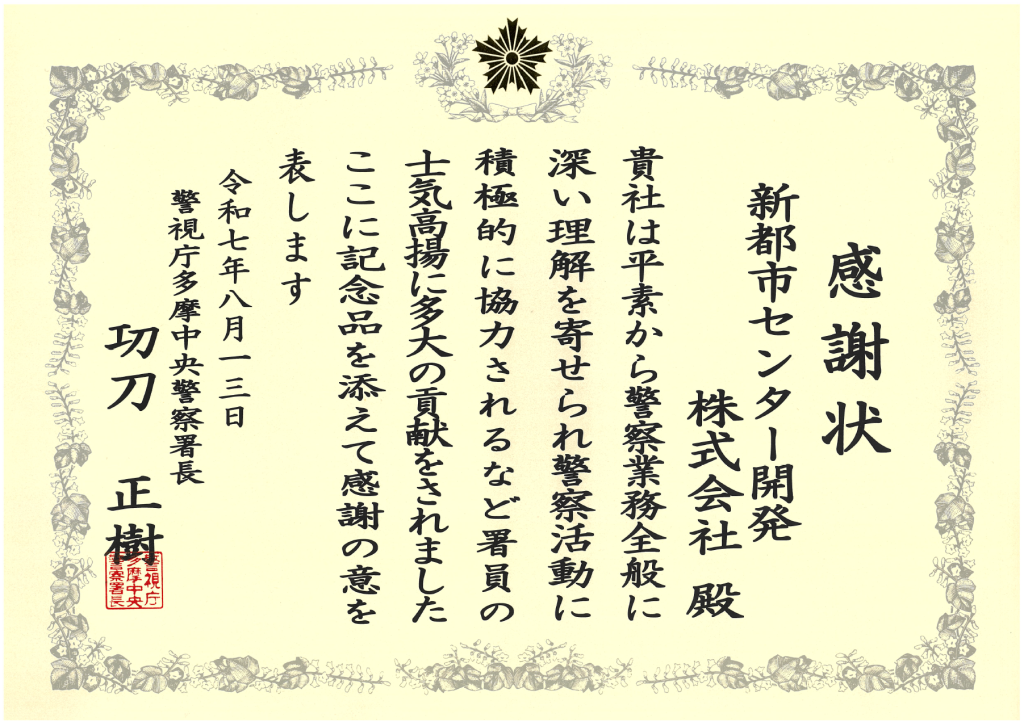 感謝状
新都市センター開発
株式会社 殿
貴社は平素から警察業務全般に
深い理解を寄せられ警察活動に
積極的に協力されるなど署員の
士気高揚に多大の貢献をされました
ここに記念品を添えて感謝の意を
表します
令和七年八月一三日
警視庁多摩中央警察署長
功刀 正樹
警視庁
多摩中央
警察署長